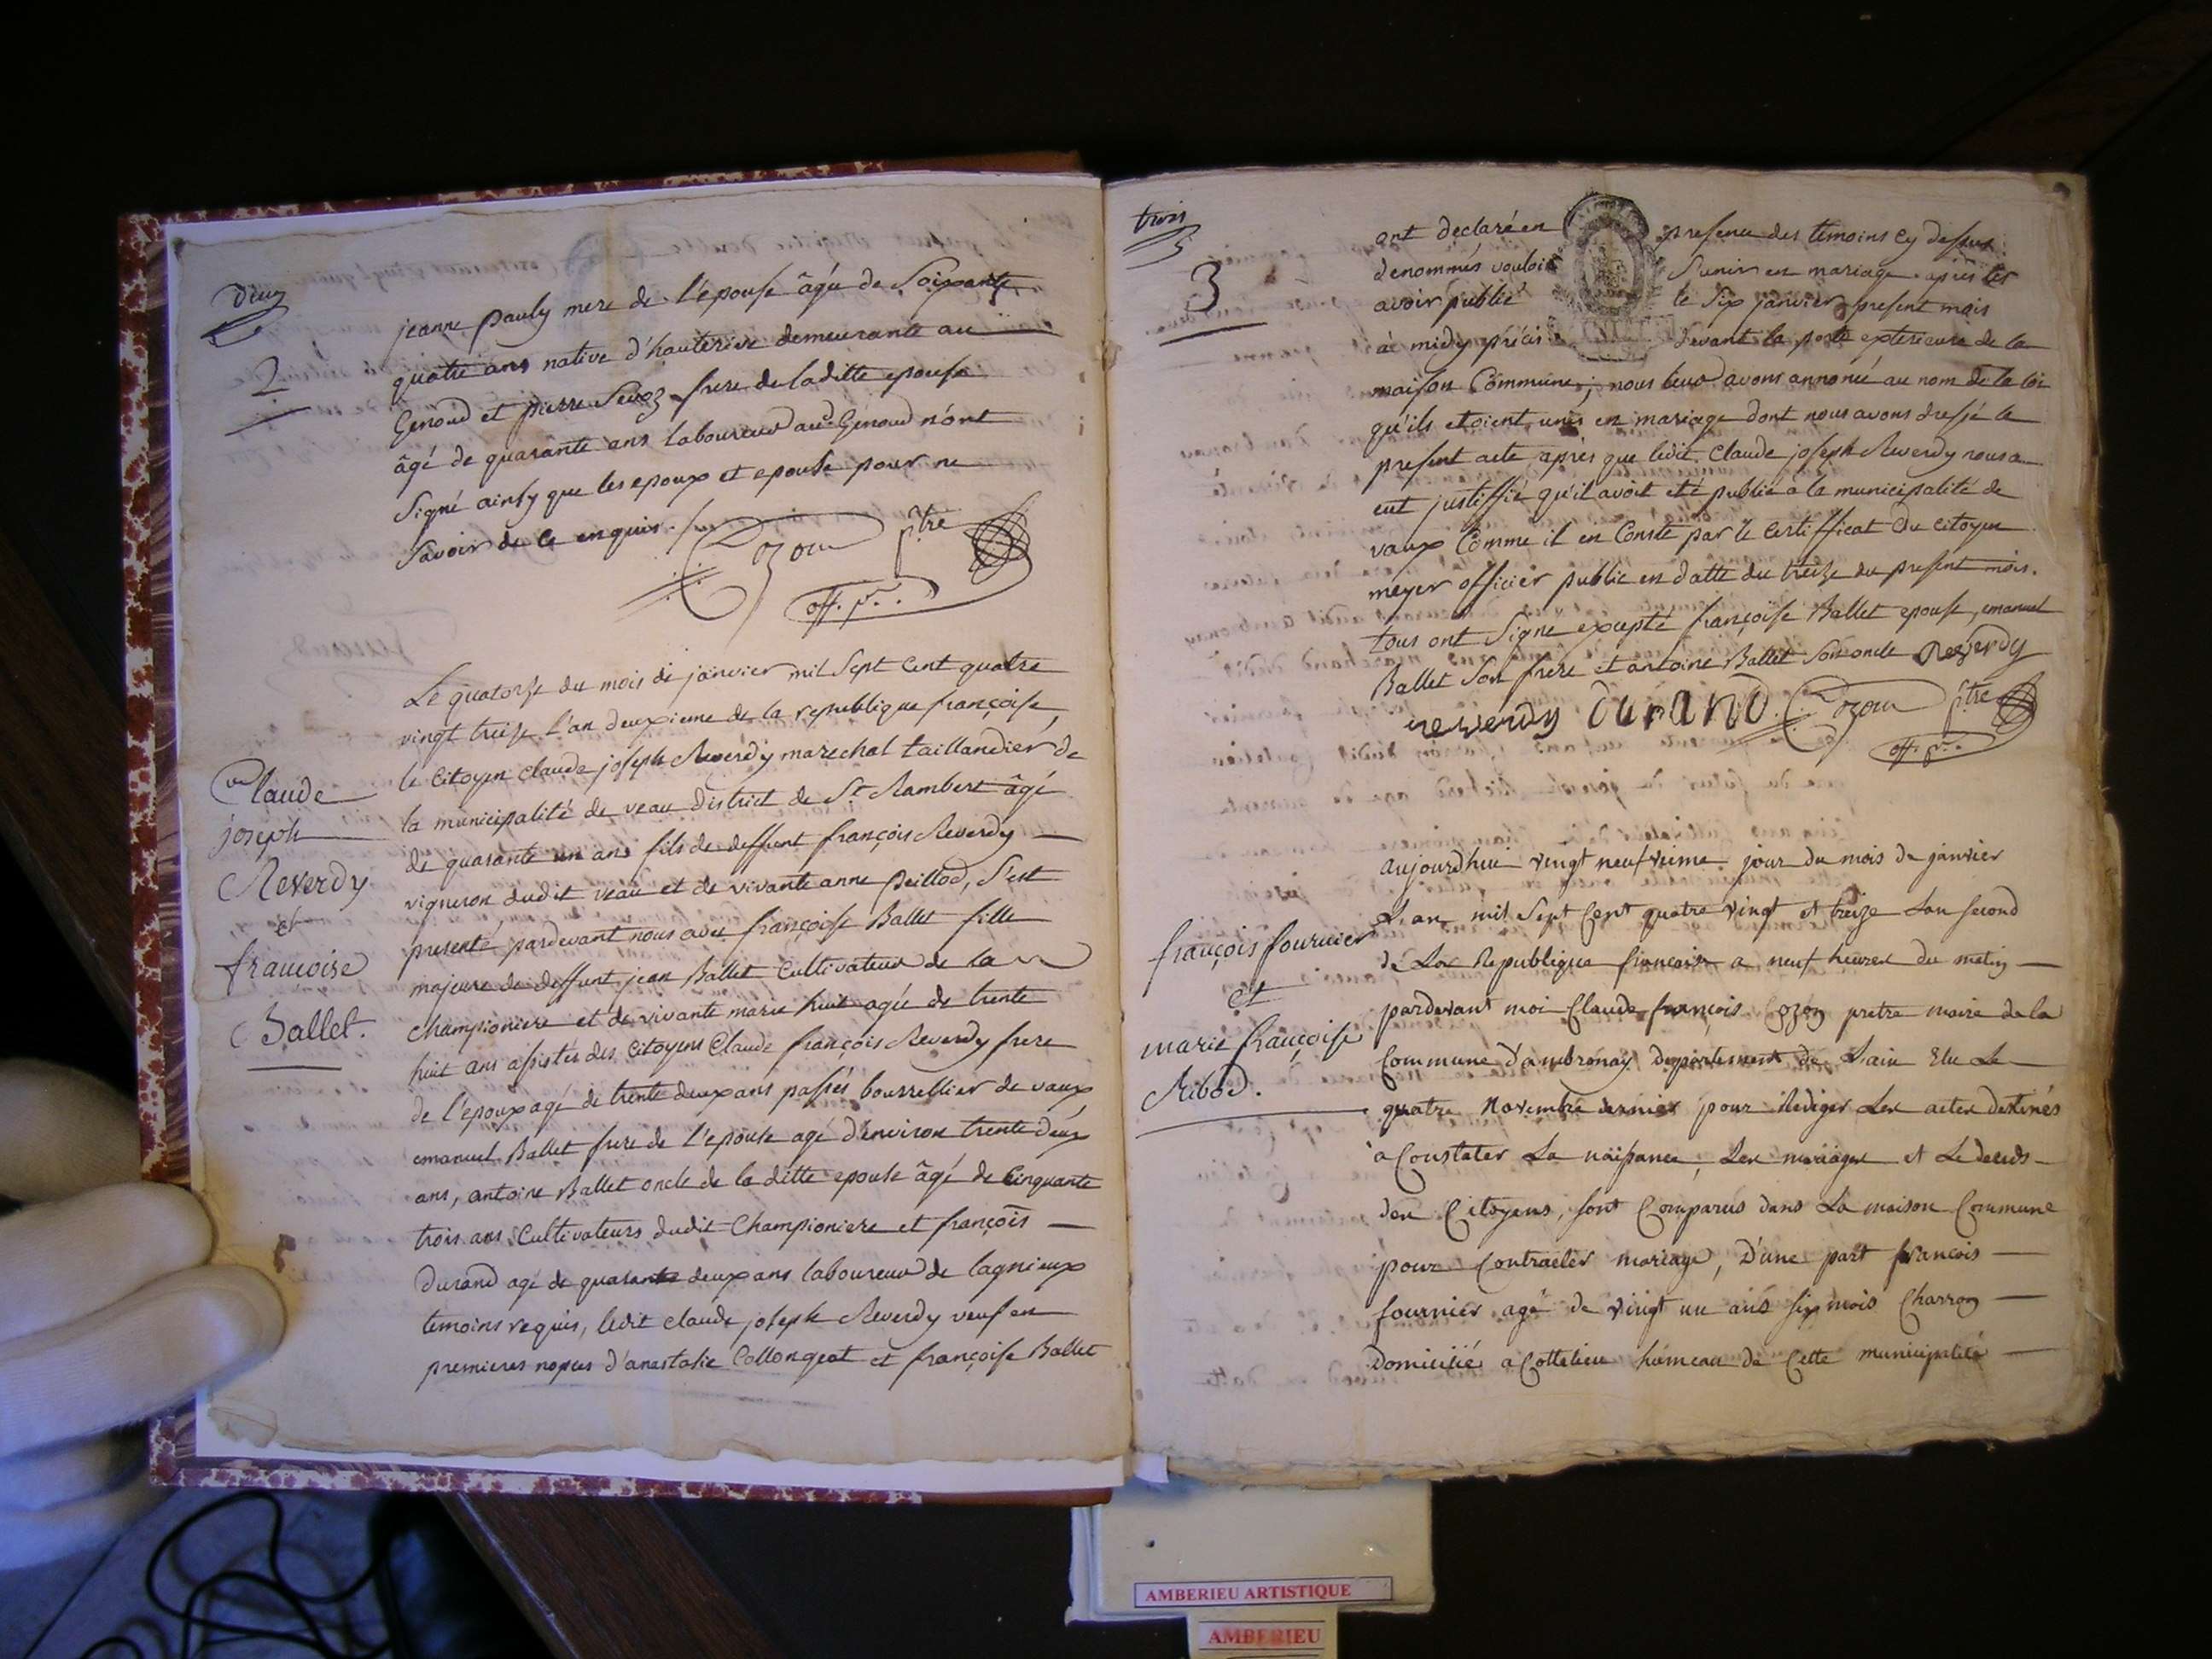 deux
2
jeanne pauly mere de l'epouse âgée de Soixante
quatre ans native d'hauterive demeurante au
Genoud et pierre Sevoz frere de laditte epouse
âgé de quarante ans laboureur audt Genoud n'ont
Signé ainsy que les epoux et epouse pour ne
Savoir de ce enquis.
Cozon ptre
off. p.
Le quatorze du mois de janvier mil Sept Cent quatre
vingt treize l'an deuxieme de la republique françoise,
le Citoyen Claude joseph Reverdy marechal taillandier de
la municipalité de veau district de St Rambert âgé
de quarante un ans fils de deffunt françois Reverdy
vigneron dudit veau et de vivante anne peillod, S'est
presenté pardevant nous avec françoise Ballet fille
majeure de deffunt jean Ballet Cultivateur de la
Championiere et de vivante marie huit agée de trente
huit ans assistés des Citoyens Claude françois Reverdy frere
de l'epoux agé de trente deux ans passés bourrellier de vaux
emanuel Ballet frere de l'epouse agé d'environ trente deux
ans, antoine Ballet oncle de la ditte epouse âgé de Cinquante
trois ans Cultivateurs dudit Championiere et françois
Durand agé de quarante deux ans laboureur de lagnieux
temoins requis, ledit claude joseph Reverdy veuf en
premieres nopces d'anastasie Collongeat et françoise Ballet
Claude
joseph
Reverdy
et
francoise
Ballet.
trois
3
ont declaré en presence des temoins cy dessus
denommés vouloir S'unir en mariage. après les
avoir publié le Six janvier present mois
à midy précis devant la porte exterieure de la
maison Commune; nous leur avons annoncé au nom de la loi
qu'ils etoient unis en mariage dont nous avons dressé le
present acte après que ledit Claude joseph Reverdy nous a
eut justiffié qu'il avoit eté publié a la municipalité de
vaux Comme il en Conste par le Certifficat du Citoyen
meyer officier public en datte du treize du present mois.
tous ont Signé excepté françoise Ballet epouse, emanuel
Ballet Son frere et antoine Ballet Son oncle Reverdy
reverdy DURAND Cozon ptre
off. p.
françois fournier
et
marie françoise
Ribod.
aujourdhui vingt neufvieme jour du mois de janvier
L'an mil Sept Cent quatre vingt et treize Lan second
de La Republique francoise a neuf heures du matin
pardevant moi Claude françois Cozon pretre maire de la
Commune d'ambronay departement de L'ain Elu Le
quatre Novembre dernier pour Rediger Les actes destinés
à Constater La naissance, Les mariages et Le deces
des Citoyens, sont Comparus dans La maison Commune
pour Contracter mariage, D'une part francois
fournier agé de vingt un ans six mois Charron
Domicilié a Cottelieu hameau de Cette municipalité
AMBERIEU ARTISTIQUE
AMBERIEU